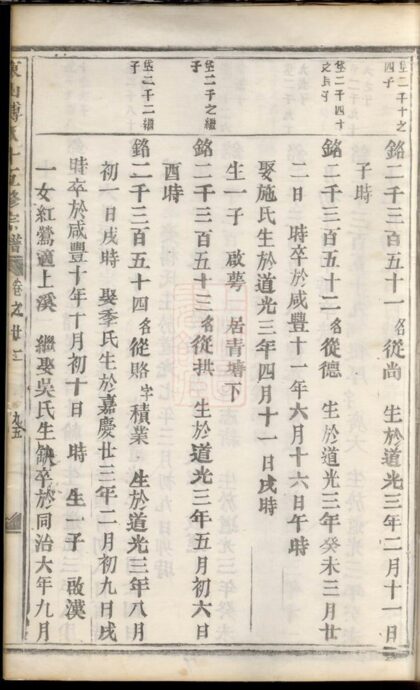 二千十之
四子
銘二千三百五十一名從尚 生於道光三年二月十一日
子時
二千四十
之 子
銘二千三百五十二名從德 生於道光三年癸未三月廿
二日 時卒於咸豐十一年六月十六日午時
娶施氏生於道光三年四月十一日戌時
生一子 啟夢 居青塘下
二千之繼
子
銘二千三百五十三名從拱 生於道光三年五月初六日
酉時
二千二繼
子
銘二千三百五十四名從賂字積業 生於道光三年八月
初一日戌時 娶季氏生於嘉慶廿三年二月初九日戌
時卒於咸豐十年十月初十日 時 生一子 啟漢
一女紅鶯適上溪 繼娶吳氏生缺卒於同治六年九月
東山傅氏十五修宗譜 卷之廿二 九五